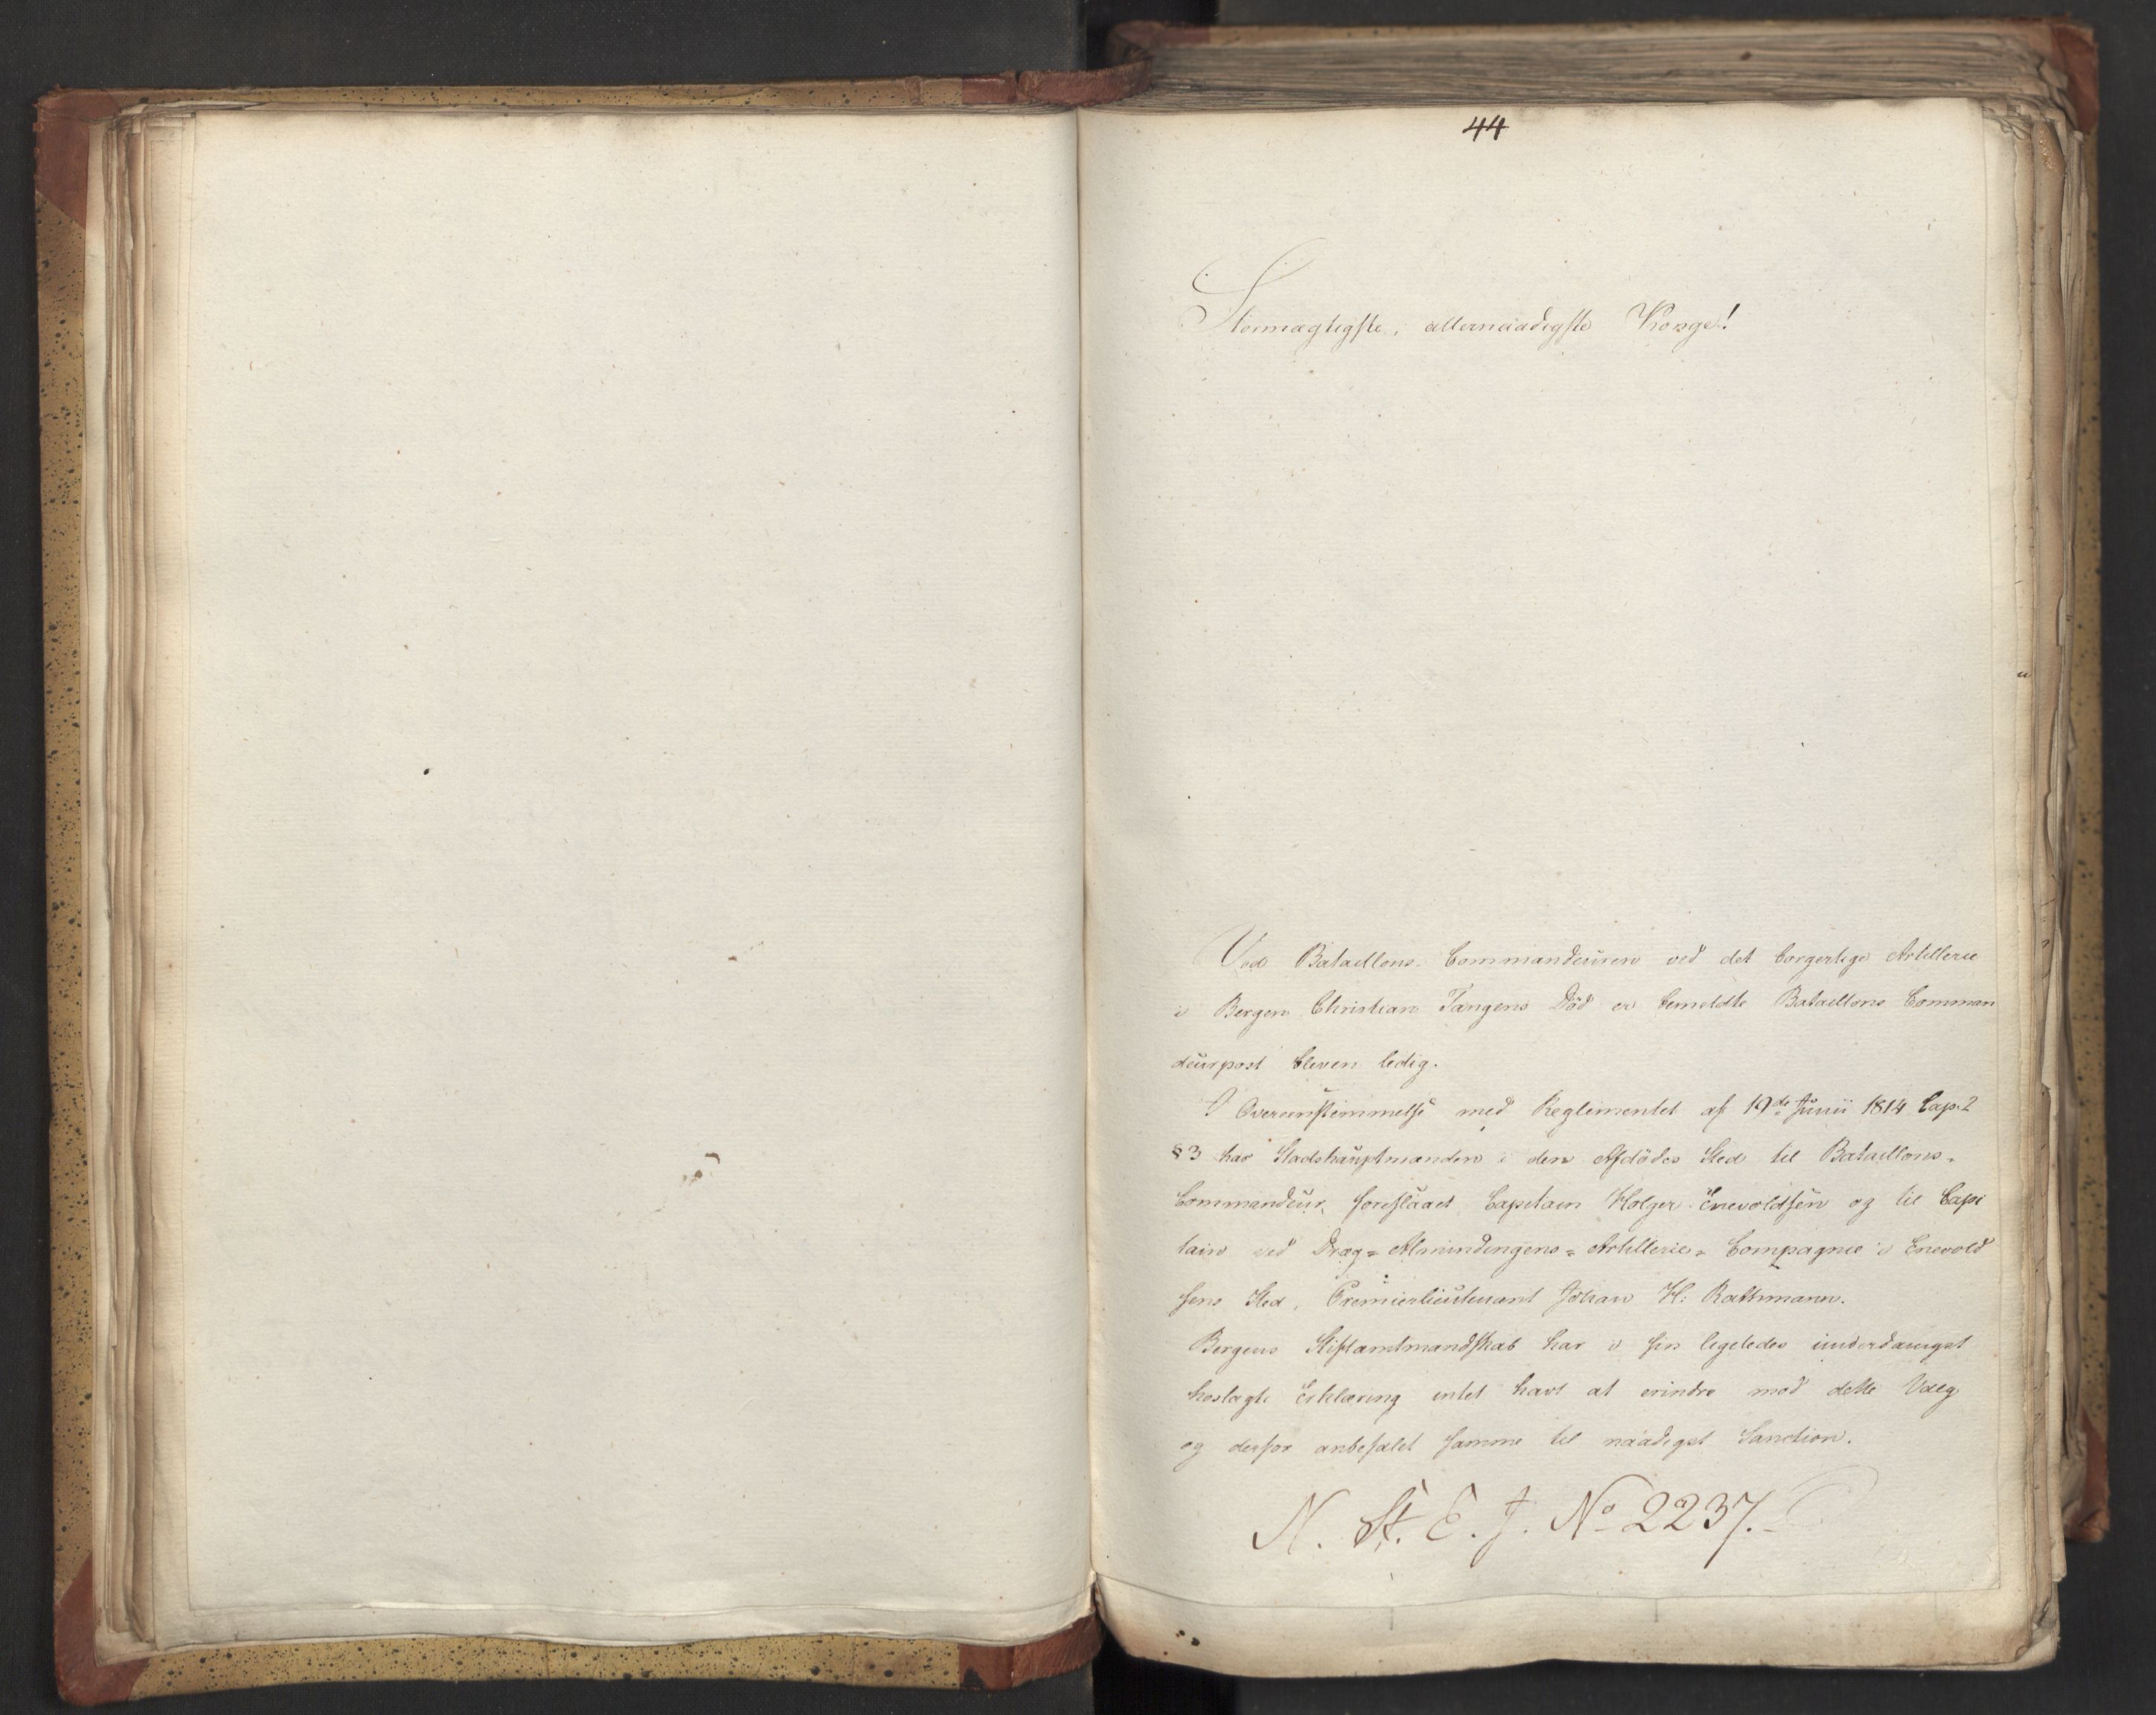 44
Stormægtigste, allernaadigste Konge!
Ved Bataillons-Commandeuren ved det borgerlige Artillerie
i Bergen Christian Tangens Död er bemeldte Bataillons Comman
deurpost bleven ledig.
I Overeensstemmelse med Reglementet af 19de Junii 1814 Cap. 2
§ 3 har Stadshauptmanden i den Afdödes Sted til Bataillons-
Commandeur foreslaaet Capitain Holger Enevoldsen og til Capi
tain ved Dræg= Almindingens= Artillerie= Compagnie i Enevold
sens Sted, Premierlieutenant Johan H: Rathmann.
Bergens Stiftamtmandskab har i sin ligeledes underdanigst
hoslagte Erklæring intet havt at erindre mod dette Valg
og derfor anbefalet samme til naadigst Sanction.
N. St. E. J. No 2237.